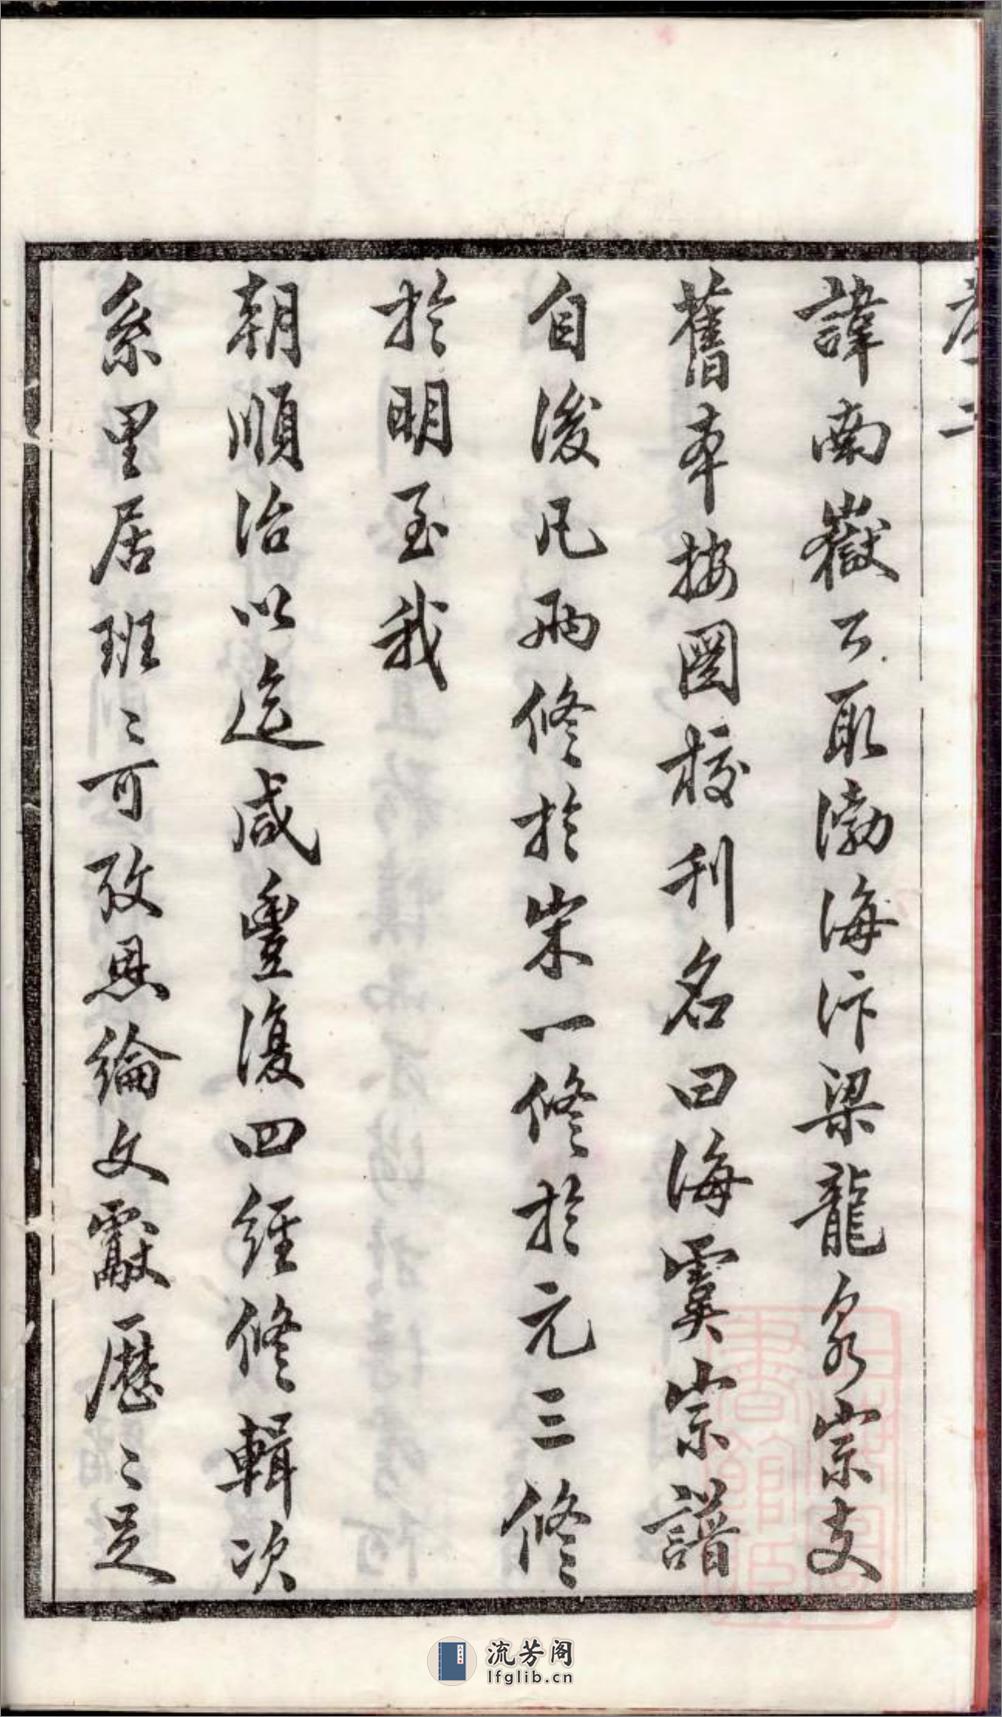 諱南嶽公取渤海汴梁龍泉宗支
舊本按圖校刊名曰海虞宗譜
自後凡兩修於宋一修於元三修
於明至我
朝順治以迄咸豐復四經修輯次
系里居班〻可攷恩綸文獻歷〻足
流芳阁
lfglib.cn